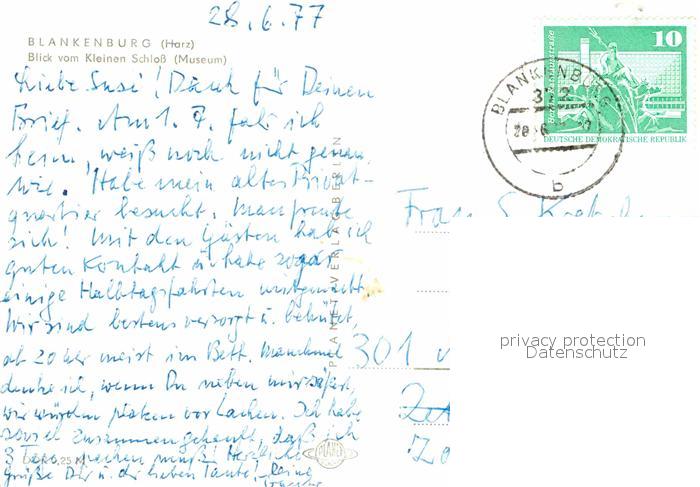 28.6.77
BLANKENBURG (Harz)
Blick vom Kleinen Schloß (Museum)
Liebe Susi! Dank für Deinen
Brief. Am 1. 7. fahr ich
heim, weiß noch nicht genau,
wie. Habe mein altes Privat-
quartier besucht. Man freute
sich! Mit den Gästen hab ich
guten Kontakt u. habe sogar
einige Halbtagsfahrten mitgemacht.
Wir sind bestens versorgt u. behütet,
ab 20 Uhr meist im Bett. Manchmal
denke ich, wenn Du neben mir säßest,
wir würden platzen vor Lachen. Ich habe
soviel zusammengekauft, daß ich
3 machen muß! Herzliche
Grüße Dir u. der lieben Tante! Deine
PLANET-VERLAG BERLIN
PLANET
0,25 M
BLANKENBURG
372
b
10
DEUTSCHE DEMOKRATISCHE REPUBLIK
Frau S.
301
privacy protection
Datenschutz